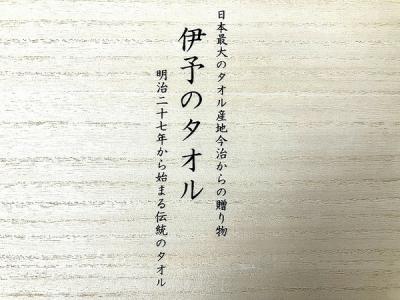 日本最大のタオル産地今治からの贈り物
伊予のタオル
明治二十七年から始まる伝統のタオル